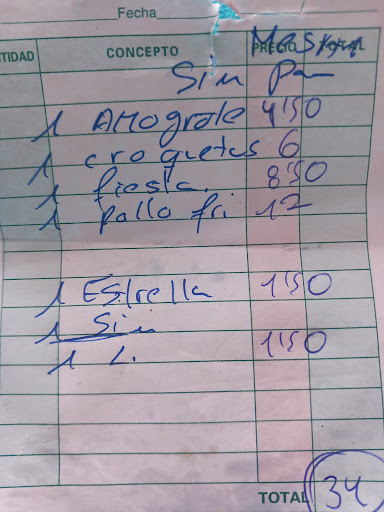 Fecha
TIDAD CONCEPTO PRECIO
Sin Pan
1 AMOgrote 4'50
1 croquetas 6
1 fiesta. 8'50
1 pollo fri. 12
1 Estrella 1'50
1 Sin
1 L. 1'50
TOTAL 34